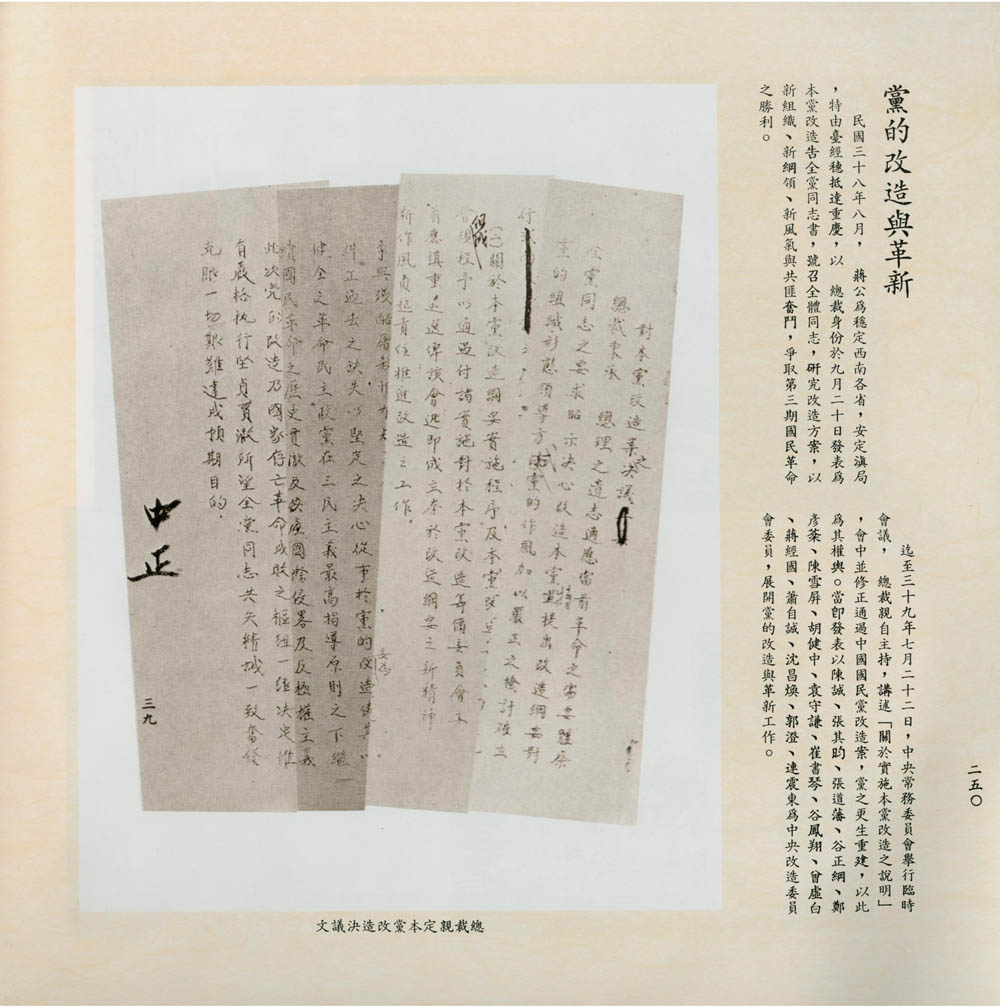 黨的改造與革新
民國三十八年八月，　蔣公爲穩定西南各省，安定滇局
，特由臺經穗抵達重慶，以　總裁身份於九月二十日發表爲
本黨改造告全黨同志書，號召全體同志，研究改造方案，以
新組織、新綱領、新風氣與共匪奮鬥，爭取第三期國民革命
之勝利。
迄至三十九年七月二十二日，中央常務委員會舉行臨時
會議，　總裁親自主持，講述「關於實施本黨改造之說明」
，會中並修正通過中國國民黨改造案，黨之更生重建，以此
爲其權輿。當卽發表以陳誠、張其昀、張道藩、谷正綱、鄭
彥棻、陳雪屏、胡健中、袁守謙、崔書琴、谷鳳翔、曾虛白
、蔣經國、蕭自誠、沈昌煥、郭澄、連震東爲中央改造委員
會委員，展開黨的改造與革新工作。
二五〇
對本黨改造案之決議
總裁秉承　總理之遺志適應當前革命之需要體察
全黨同志之要求昭示決心改造本黨特提出改造綱要對
黨的組織形態領導方式黨的作風加以嚴正之檢討確立
(一)關於本黨改造綱要實施程序及本黨改造
會議程予以通過付諸實施對於本黨改造籌備委員會
負應慎重遴選俾該會迅卽成立本於改造綱要之新精神
新作風負起責任推進改造之工作.
糾正過去之缺失以堅定之決心從事於黨的改造使其
健全之革命民主政黨在三民主義最高指導原則之下繼
續國民革命之歷史貫澈反共產國際侵畧及反極權主義
此次党的改造乃國家存亡革命成敗之樞紐一經決定惟
有嚴格执行坚貞貫澈所望全党同志共矢精誠一致奮發
克服一切艱難達成預期目的.
中正
三九
總裁親定本黨改造決議文